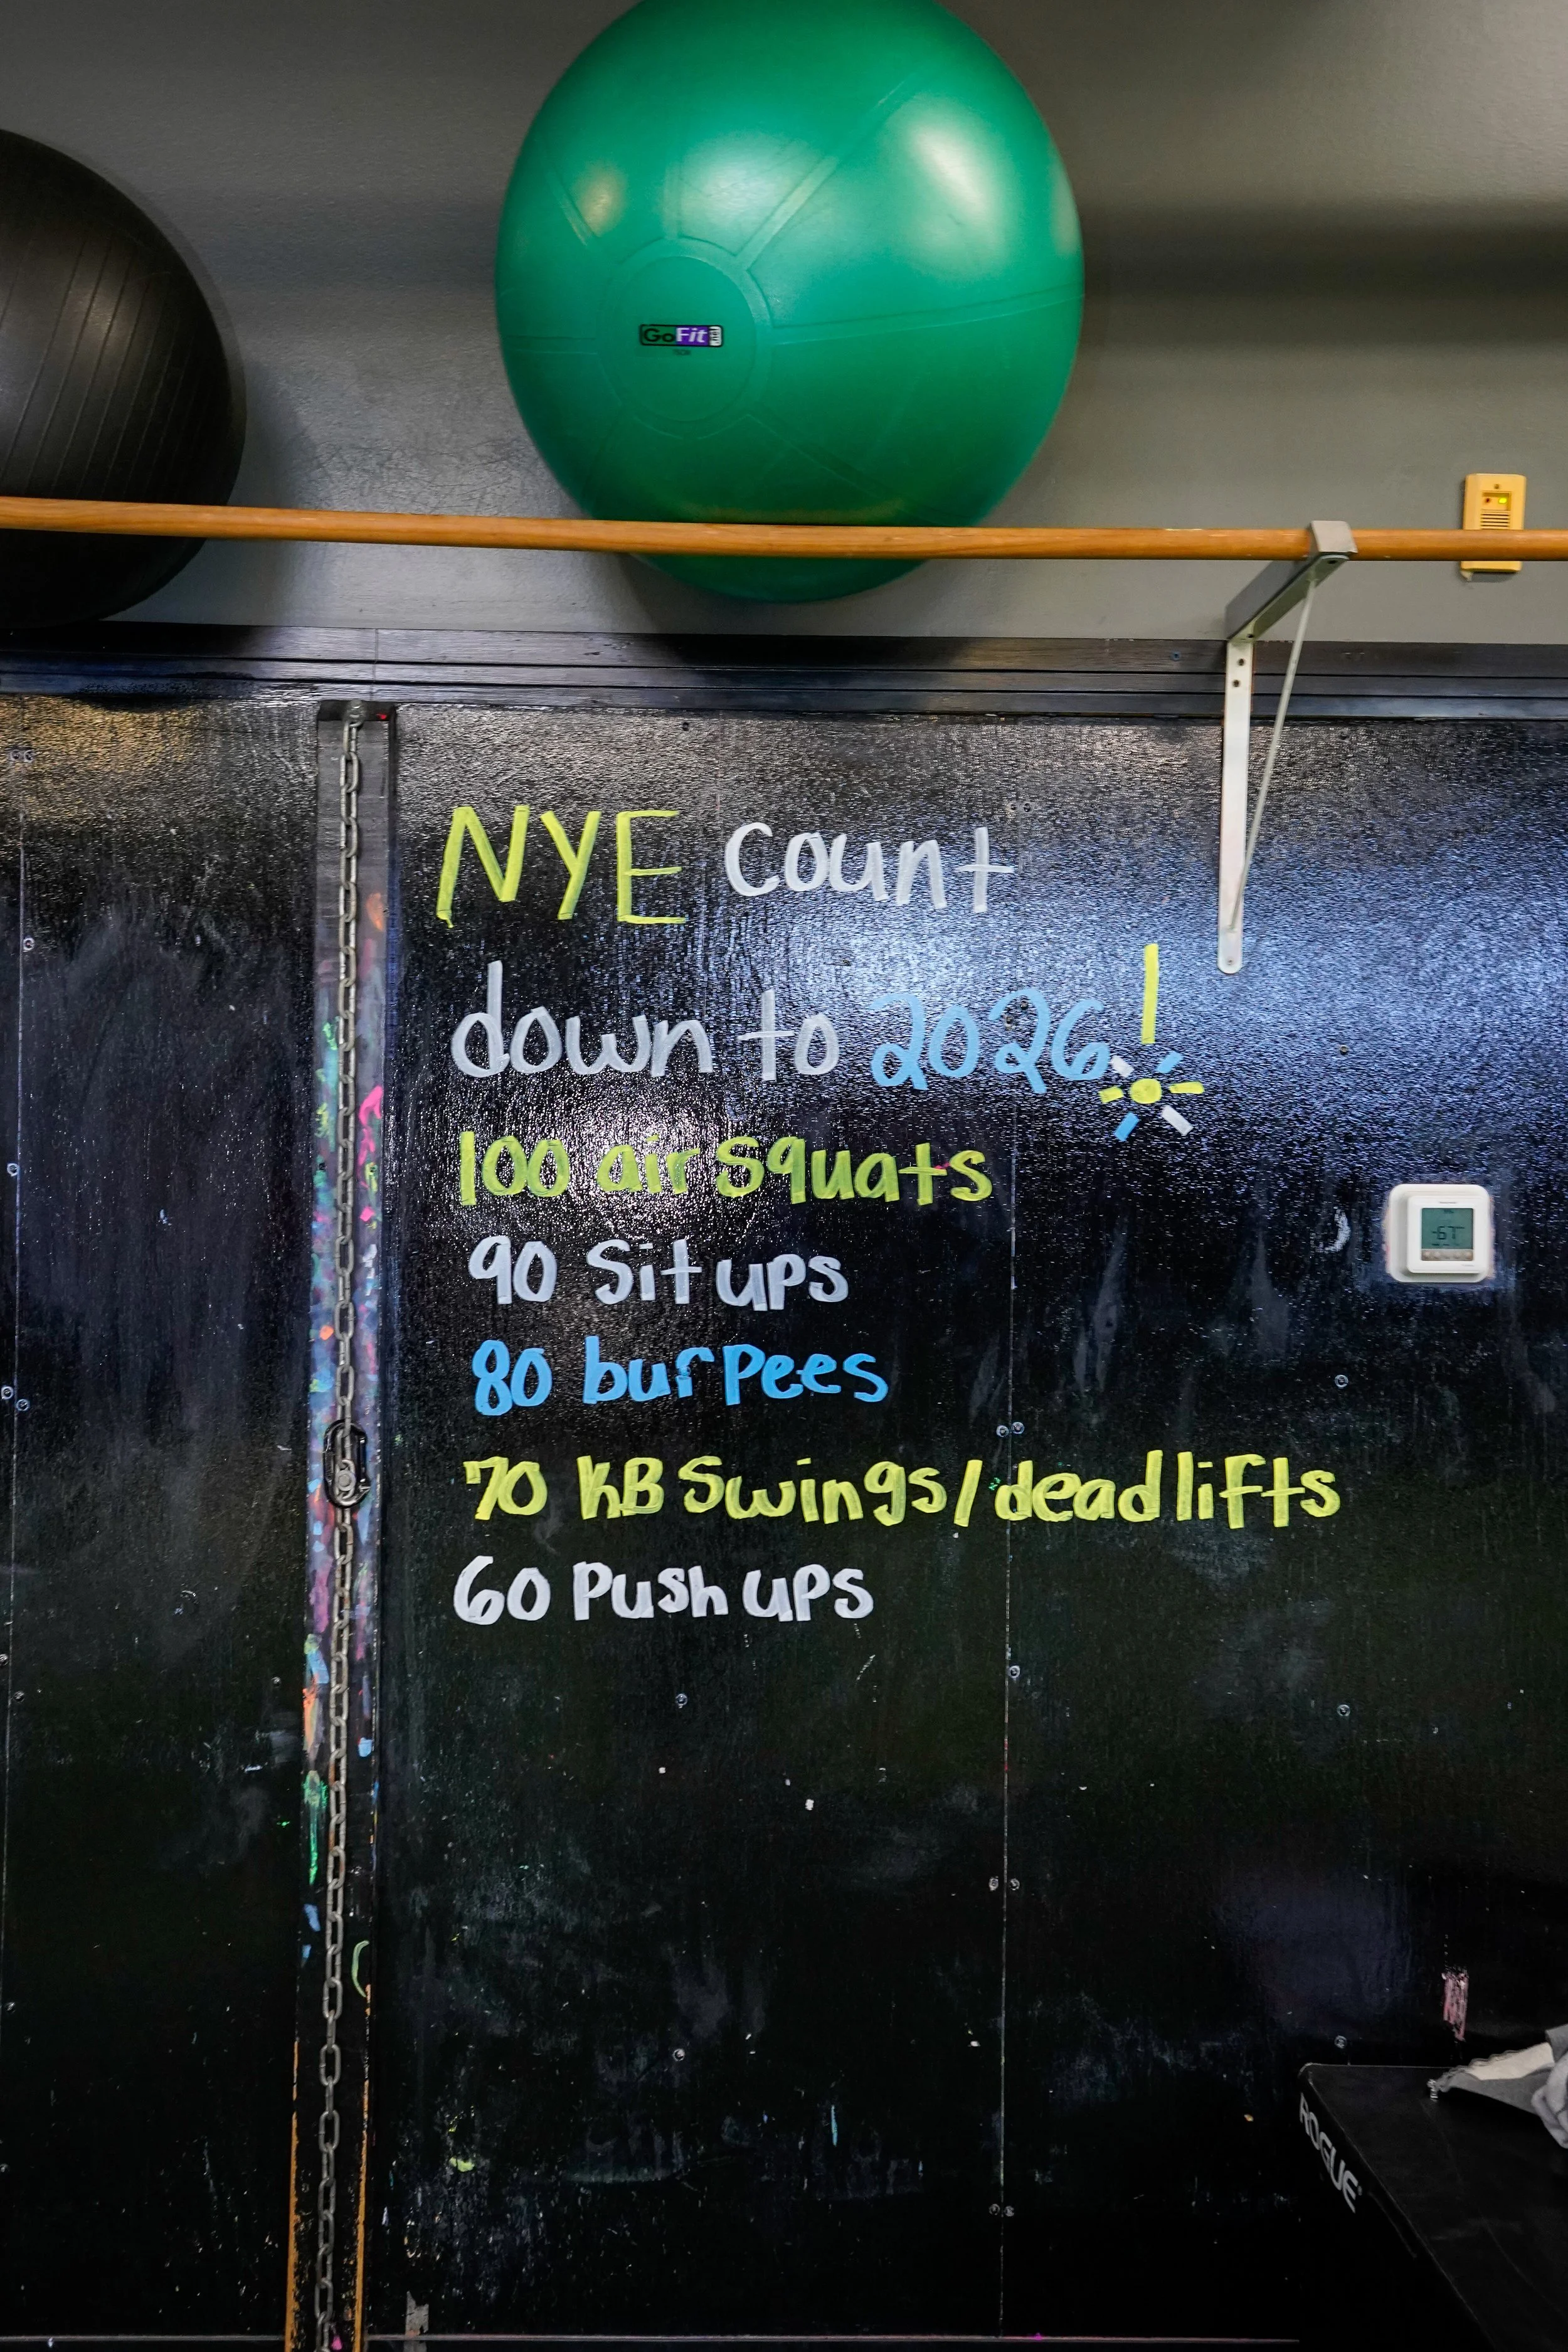 GoFit
NYE Count
down to 2026!
100 air squats
90 Sit ups
80 burpees
70 KB Swings/deadlifts
60 Push ups
67
ROGUE